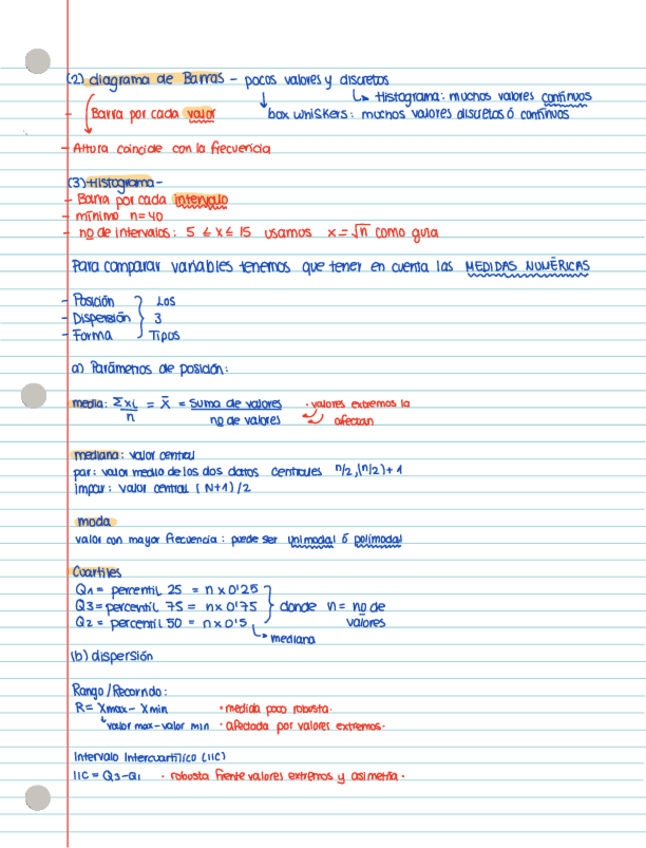 (2) diagrama de Barras - pocos valores y discretos
↳ Histograma: muchos valores continuos
- Barra por cada valor
↓ box whiskers: muchos valores discretos ó continuos
- Altura coincide con la frecuencia
(3) Histograma -
- Barra por cada intervalo
- mínimo n=40
- no de intervalos: 5 ≤ x ≤ 15 usamos x = √n como guia
Para comparar variables tenemos que tener en cuenta las MEDIDAS NUMÉRICAS
- Posición } Los
- Dispersión } 3
- Forma } Tipos
a) Parámetros de posición:
media: Σxi/n = x̄ = suma de valores / no de valores
· valores extremos la
afectan
mediana: valor central
par: valor medio de los dos datos centrales n/2, (n/2)+1
impar: valor central (N+1)/2
moda
valor con mayor frecuencia: puede ser unimodal ó polimodal
Cuartiles
Q1 = percentil 25 = n x 0'25
Q3 = percentil 75 = n x 0'75 } donde n = no de
Q2 = percentil 50 = n x 0'5 valores
↳ mediana
(b) dispersión
Rango/Recorrido:
R = Xmax - Xmin · medida poco robusta.
↳ valor max - valor min · afectada por valores extremos.
Intervalo Intercuartílico (IIC)
IIC = Q3-Q1 · robusta frente valores extremos y asimetría.